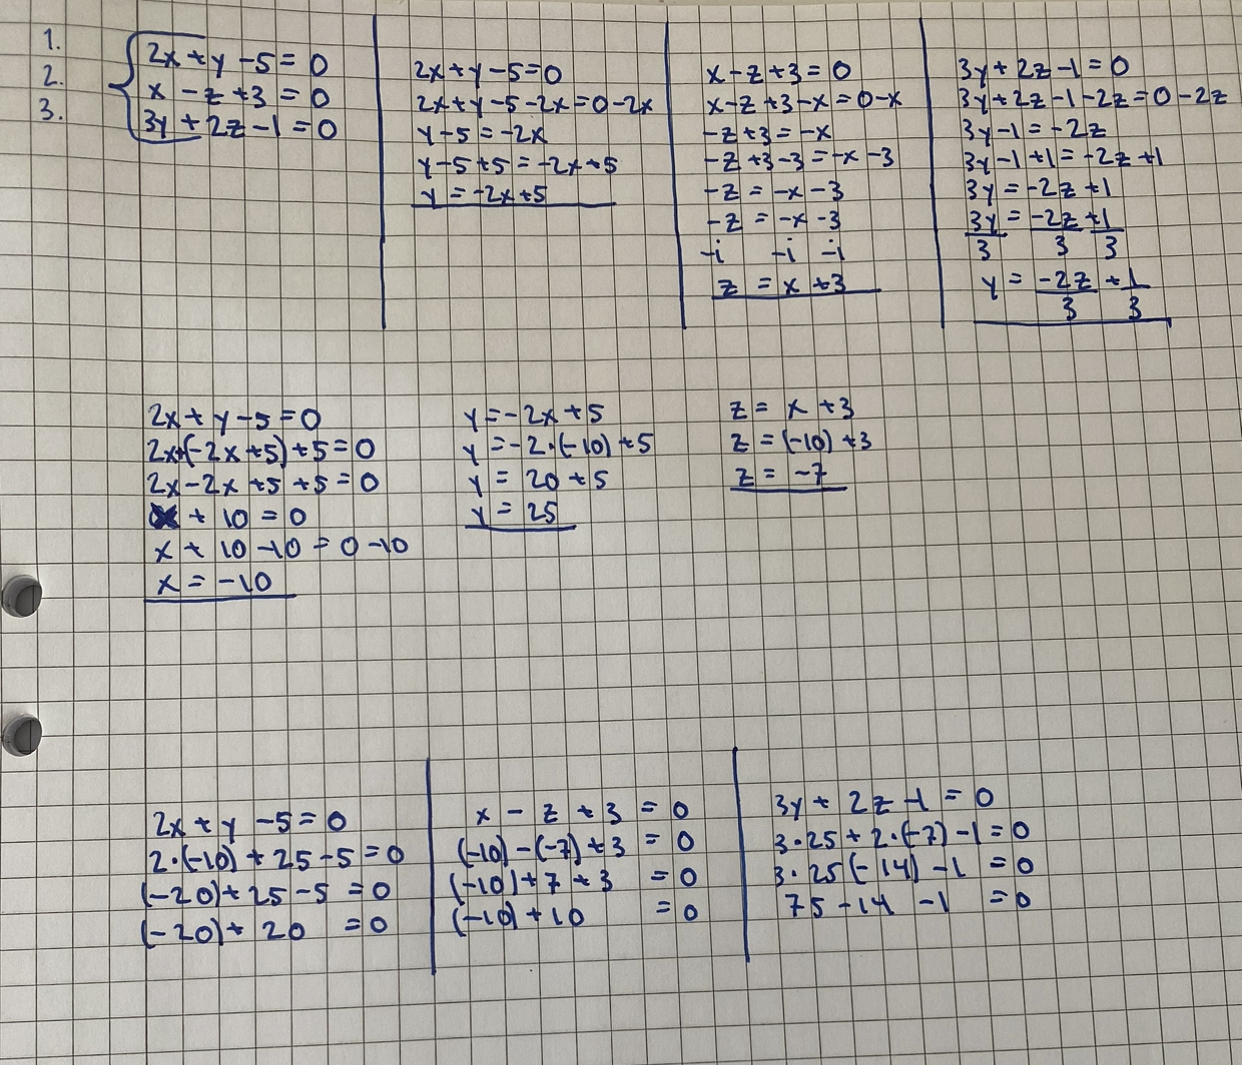 1.
2.
3.
2x + y - 5 = 0
x - z + 3 = 0
3y + 2z - 1 = 0
2x + y - 5 = 0
2x + y - 5 - 2x = 0 - 2x
y - 5 = -2x
y - 5 + 5 = -2x + 5
y = -2x + 5
x - z + 3 = 0
x - z + 3 - x = 0 - x
-z + 3 = -x
-z + 3 - 3 = -x - 3
-z = -x - 3
-z = -x - 3
-1 -1 -1
z = x + 3
3y + 2z - 1 = 0
3y + 2z - 1 - 2z = 0 - 2z
3y - 1 = -2z
3y - 1 + 1 = -2z + 1
3y = -2z + 1
3y = -2z + 1
3 3 3
y = -2z + 1
3 3
2x + y - 5 = 0
2x + (-2x + 5) + 5 = 0
2x - 2x + 5 + 5 = 0
+ 10 = 0
x + 10 - 10 = 0 - 10
x = -10
y = -2x + 5
y = -2 · (-10) + 5
y = 20 + 5
y = 25
z = x + 3
z = (-10) + 3
z = -7
2x + y - 5 = 0
2 · (-10) + 25 - 5 = 0
(-20) + 25 - 5 = 0
(-20) + 20 = 0
x - z + 3 = 0
(-10) - (-7) + 3 = 0
(-10) + 7 + 3 = 0
(-10) + 10 = 0
3y + 2z - 1 = 0
3 · 25 + 2 · (-7) - 1 = 0
3 · 25 (-14) - 1 = 0
75 - 14 - 1 = 0